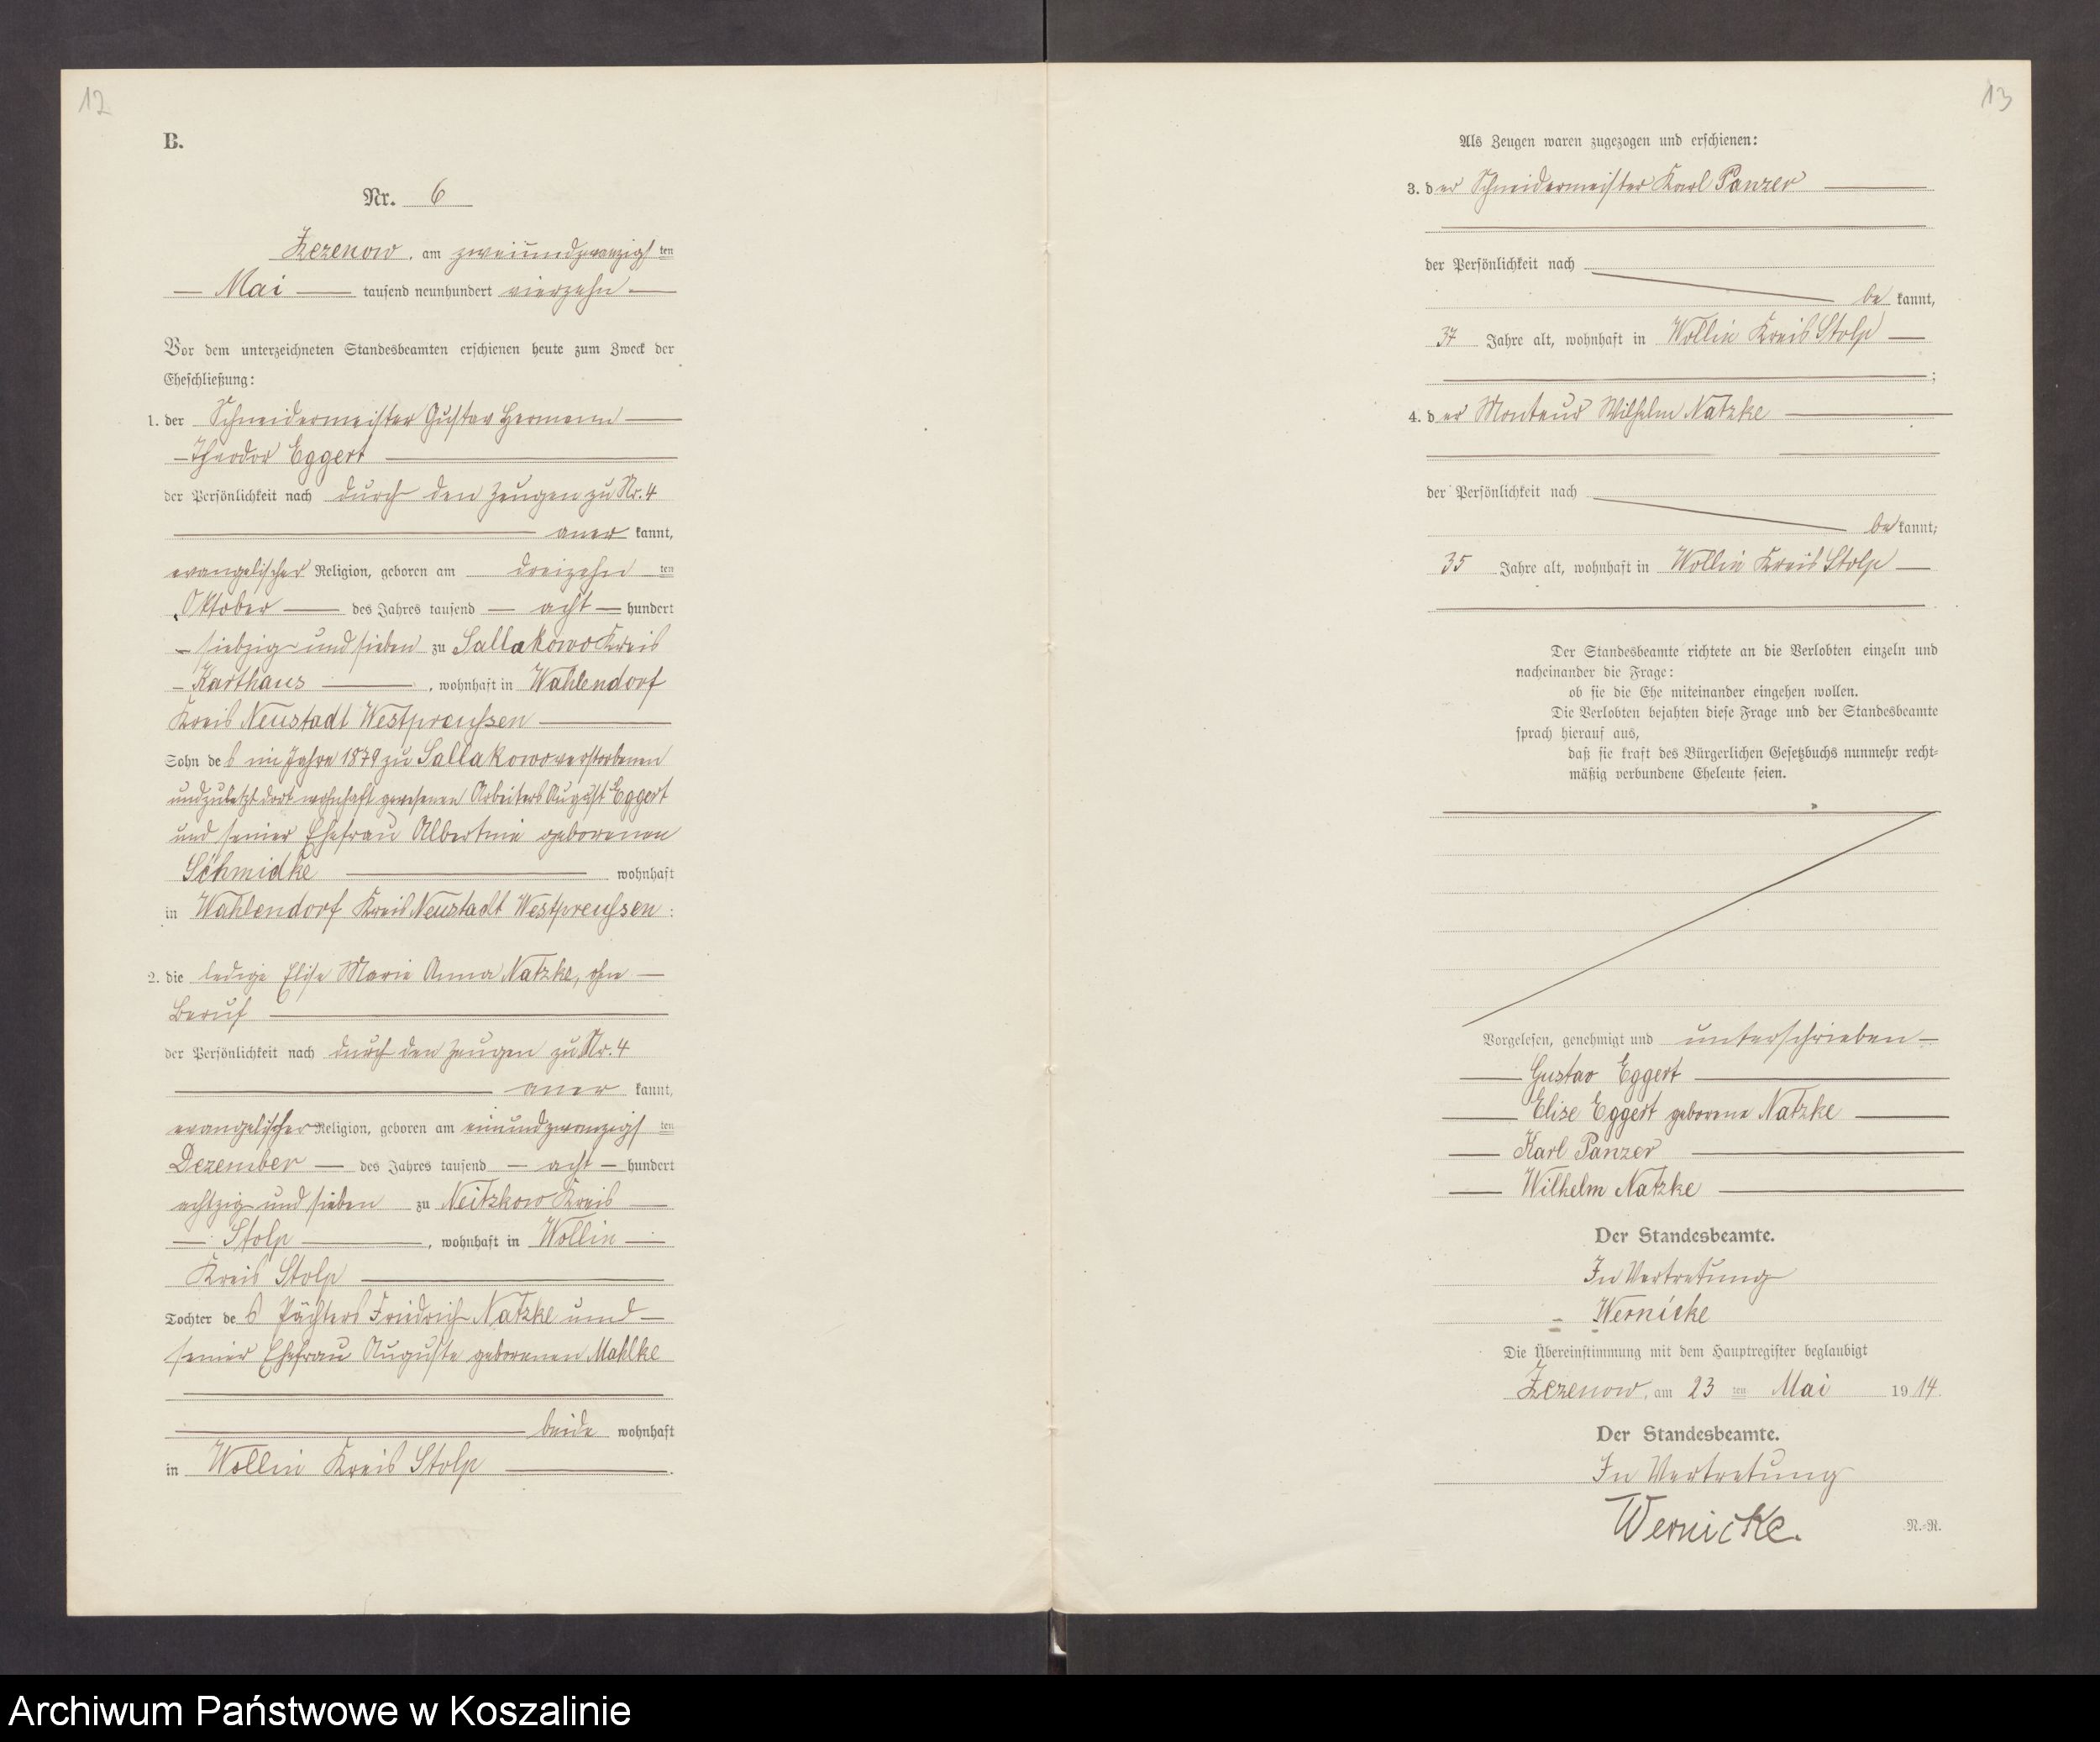 12
B.
Nr. 6
Zezenow, am zweiundzwanzigsten
Mai tausend neunhundert vierzehn
Vor dem unterzeichneten Standesbeamten erschienen heute zum Zweck der
Eheschließung:
1. der Schneidermeister Gustav Hermann
Theodor Eggert
der Persönlichkeit nach durch den Zeugen zu Nr. 4
anerkannt,
evangelischer Religion, geboren am dreizehnten
Oktober des Jahres tausend acht hundert
siebzig und sieben zu Sallakowo Kreis
Karthaus, wohnhaft in Wahlendorf
Kreis Neustadt Westpreußen
Sohn des im Jahre 1879 zu Sallakowo verstorbenen
und zuletzt dort wohnhaft gewesenen Arbeiters August Eggert
und seiner Ehefrau Albertine geborenen
Schmidke wohnhaft
in Wahlendorf Kreis Neustadt Westpreussen:
2. die ledige Elise Marie Anna Natzke, ohne
Beruf
der Persönlichkeit nach durch den Zeugen zu Nr. 4
anerkannt,
evangelischer Religion, geboren am einundzwanzigsten
Dezember des Jahres tausend acht hundert
achtzig und sieben zu Neitzkow Kreis
Stolp, wohnhaft in Wollin
Kreis Stolp
Tochter des Pächters Friedrich Natzke und
seiner Ehefrau Auguste geborenen Mahlke
beide wohnhaft
in Wollin Kreis Stolp.
13
Als Zeugen waren zugezogen und erschienen:
3. der Schneidermeister Karl Panzer
der Persönlichkeit nach
bekannt,
37 Jahre alt, wohnhaft in Wollin Kreis Stolp
;
4. der Monteur Wilhelm Natzke
der Persönlichkeit nach
bekannt;
35 Jahre alt, wohnhaft in Wollin Kreis Stolp
Der Standesbeamte richtete an die Verlobten einzeln und
nacheinander die Frage:
ob sie die Ehe miteinander eingehen wollen.
Die Verlobten bejahten diese Frage und der Standesbeamte
sprach hierauf aus,
daß sie kraft des Bürgerlichen Gesetzbuchs nunmehr recht-
mäßig verbundene Eheleute seien.
Vorgelesen, genehmigt und unterschrieben
Gustav Eggert
Elise Eggert geborene Natzke
Karl Panzer
Wilhelm Natzke
Der Standesbeamte.
In Vertretung
Wernicke
Die Übereinstimmung mit dem Hauptregister beglaubigt
Zezenow, am 23ten Mai 1914.
Der Standesbeamte.
In Vertretung
Wernicke.
N.-R.
Archiwum Państwowe w Koszalinie